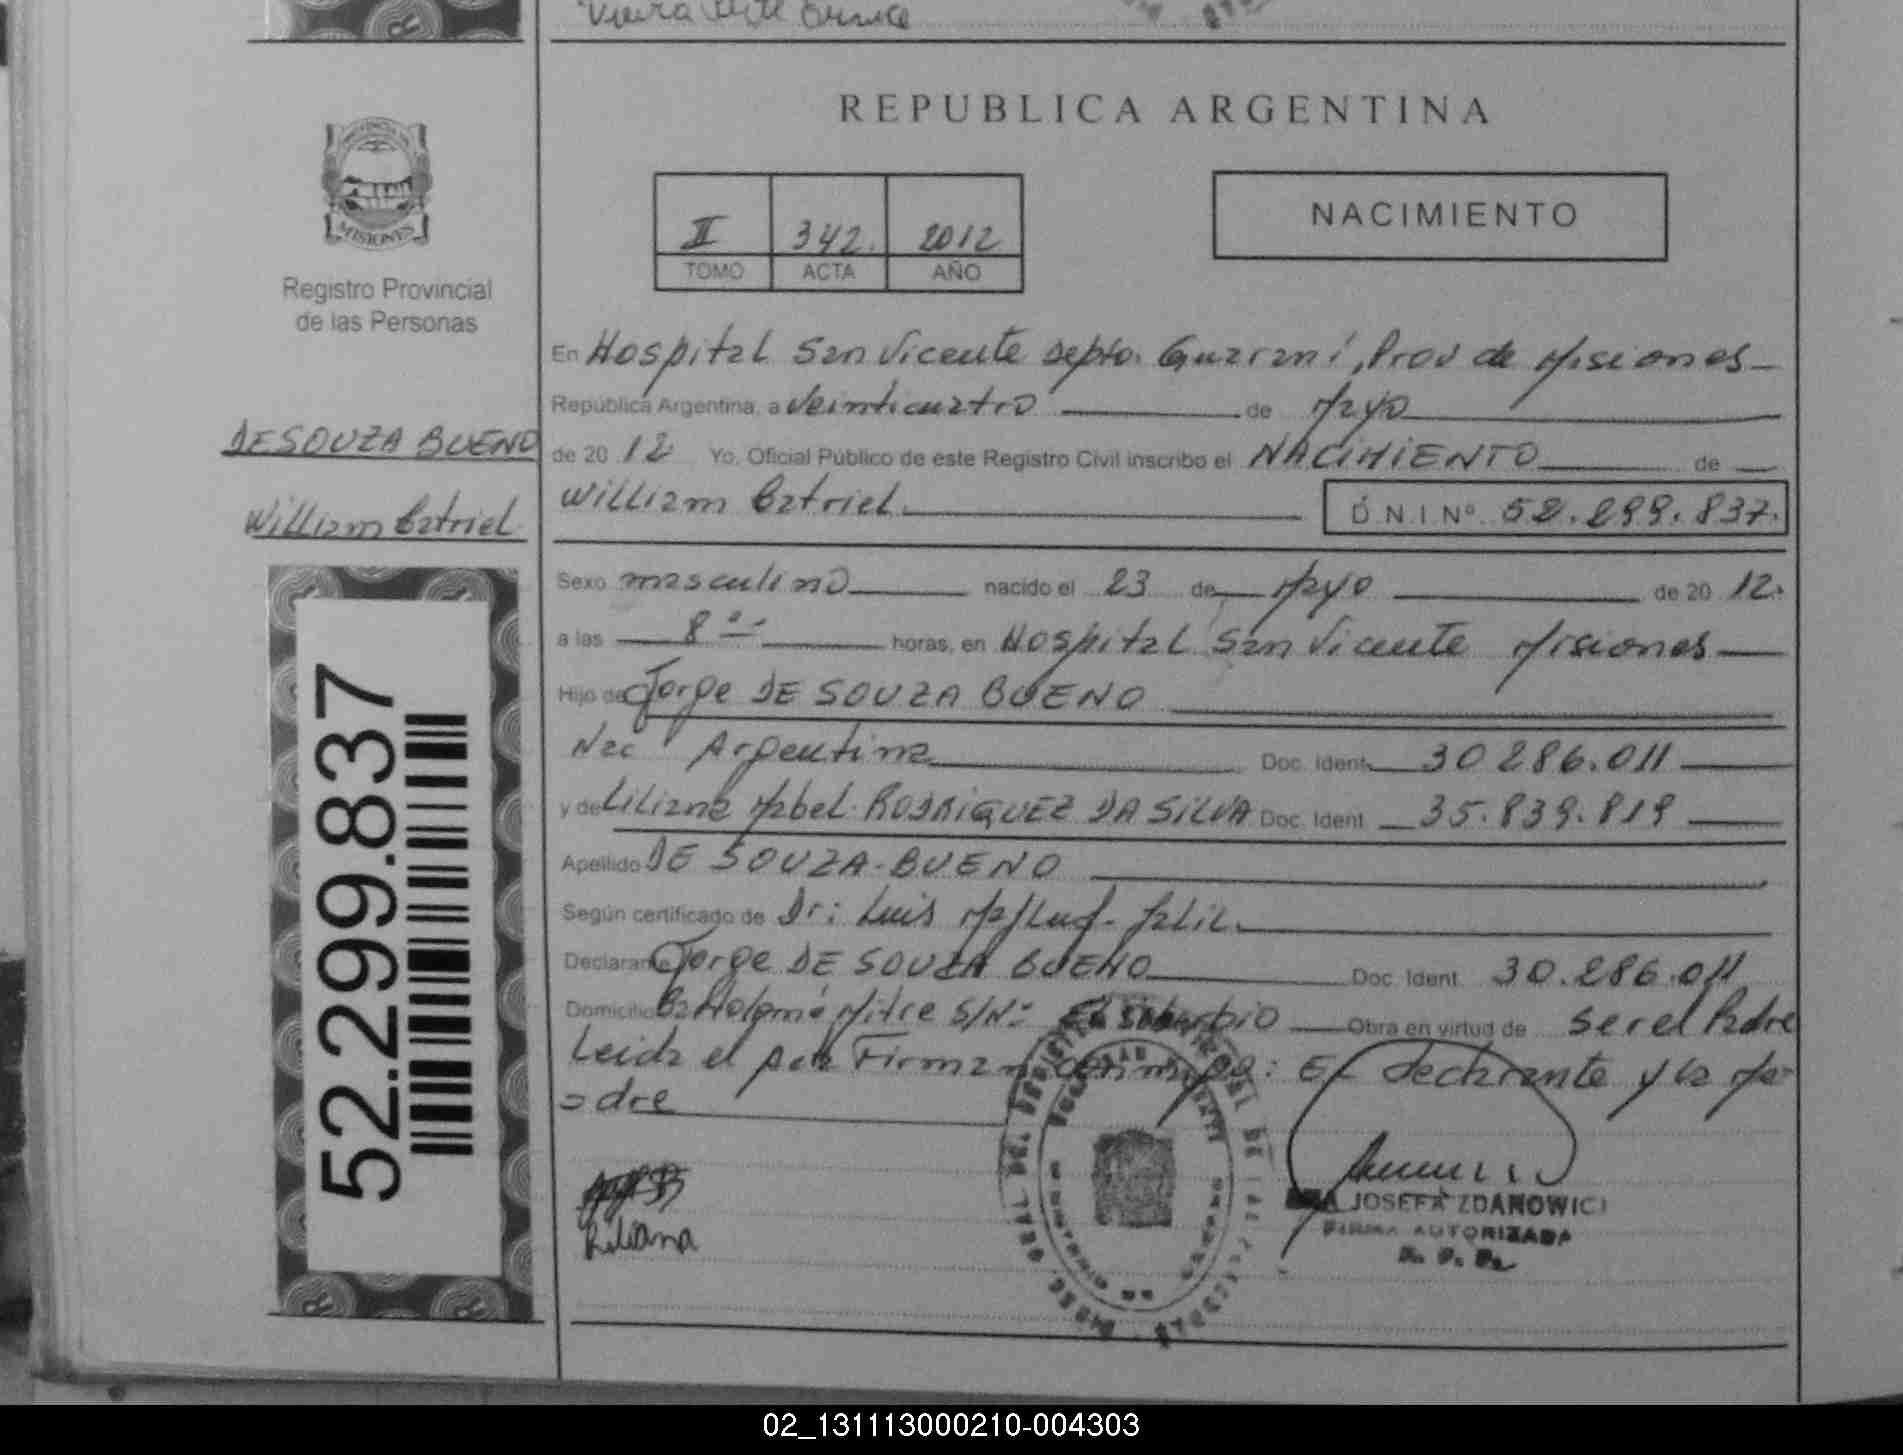 REPUBLICA ARGENTINA
MISIONES
Registro Provincial
de las Personas
II 342. 2012
TOMO ACTA AÑO
NACIMIENTO
DE SOUZA BUENO
William Gatriel
52.299.837
En Hospital San Vicente Depto. Guaraní, Prov de Misiones
República Argentina, a veinticuatro de Mayo
de 20 12 Yo, Oficial Público de este Registro Civil inscribo el NACIMIENTO de
William Gatriel
D.N.I Nº 52.299.837.
Sexo masculino nacido el 23 de Mayo de 20 12.
a las 8 horas, en Hospital San Vicente Misiones
Hijo de Jorge DE SOUZA BUENO
Nac Argentina Doc. Ident. 30 286.011
y de Liliana Mabel RODRIGUEZ DA SILVA Doc. Ident. 35.839.819
Apellido DE SOUZA-BUENO
Según certificado de Dr: Luis
Declarante Jorge DE SOUZA BUENO Doc. Ident. 30.286.011
Domicilio Bartolomé Mitre S/Nº Obra en virtud de ser el Padre
Leida el Acta Firman conmigo: El declarante y la Ma-
dre
Liliana
JOSEFA ZDANOWICZ
FIRMA AUTORIZADA
02_131113000210-004303